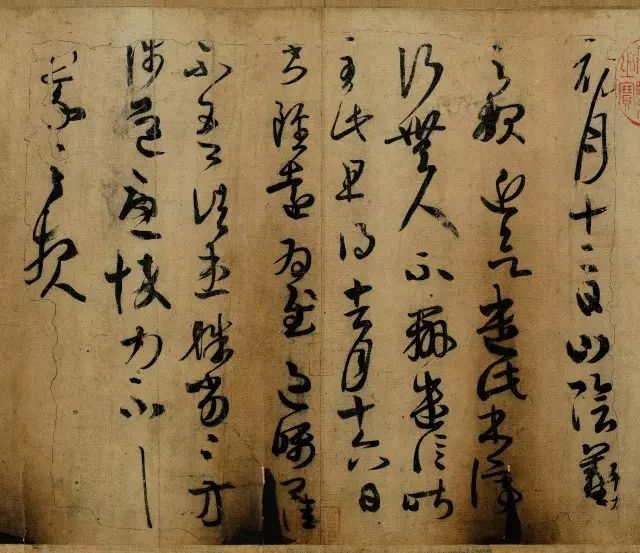 初月十二日山陰羲
之報近欲遣此書停
行無人不辦遣信昨
至此且得去月十六日
書雖遠為慰過囑
不吾諸患殊劣〻方
涉道憂悴力不
羲之報